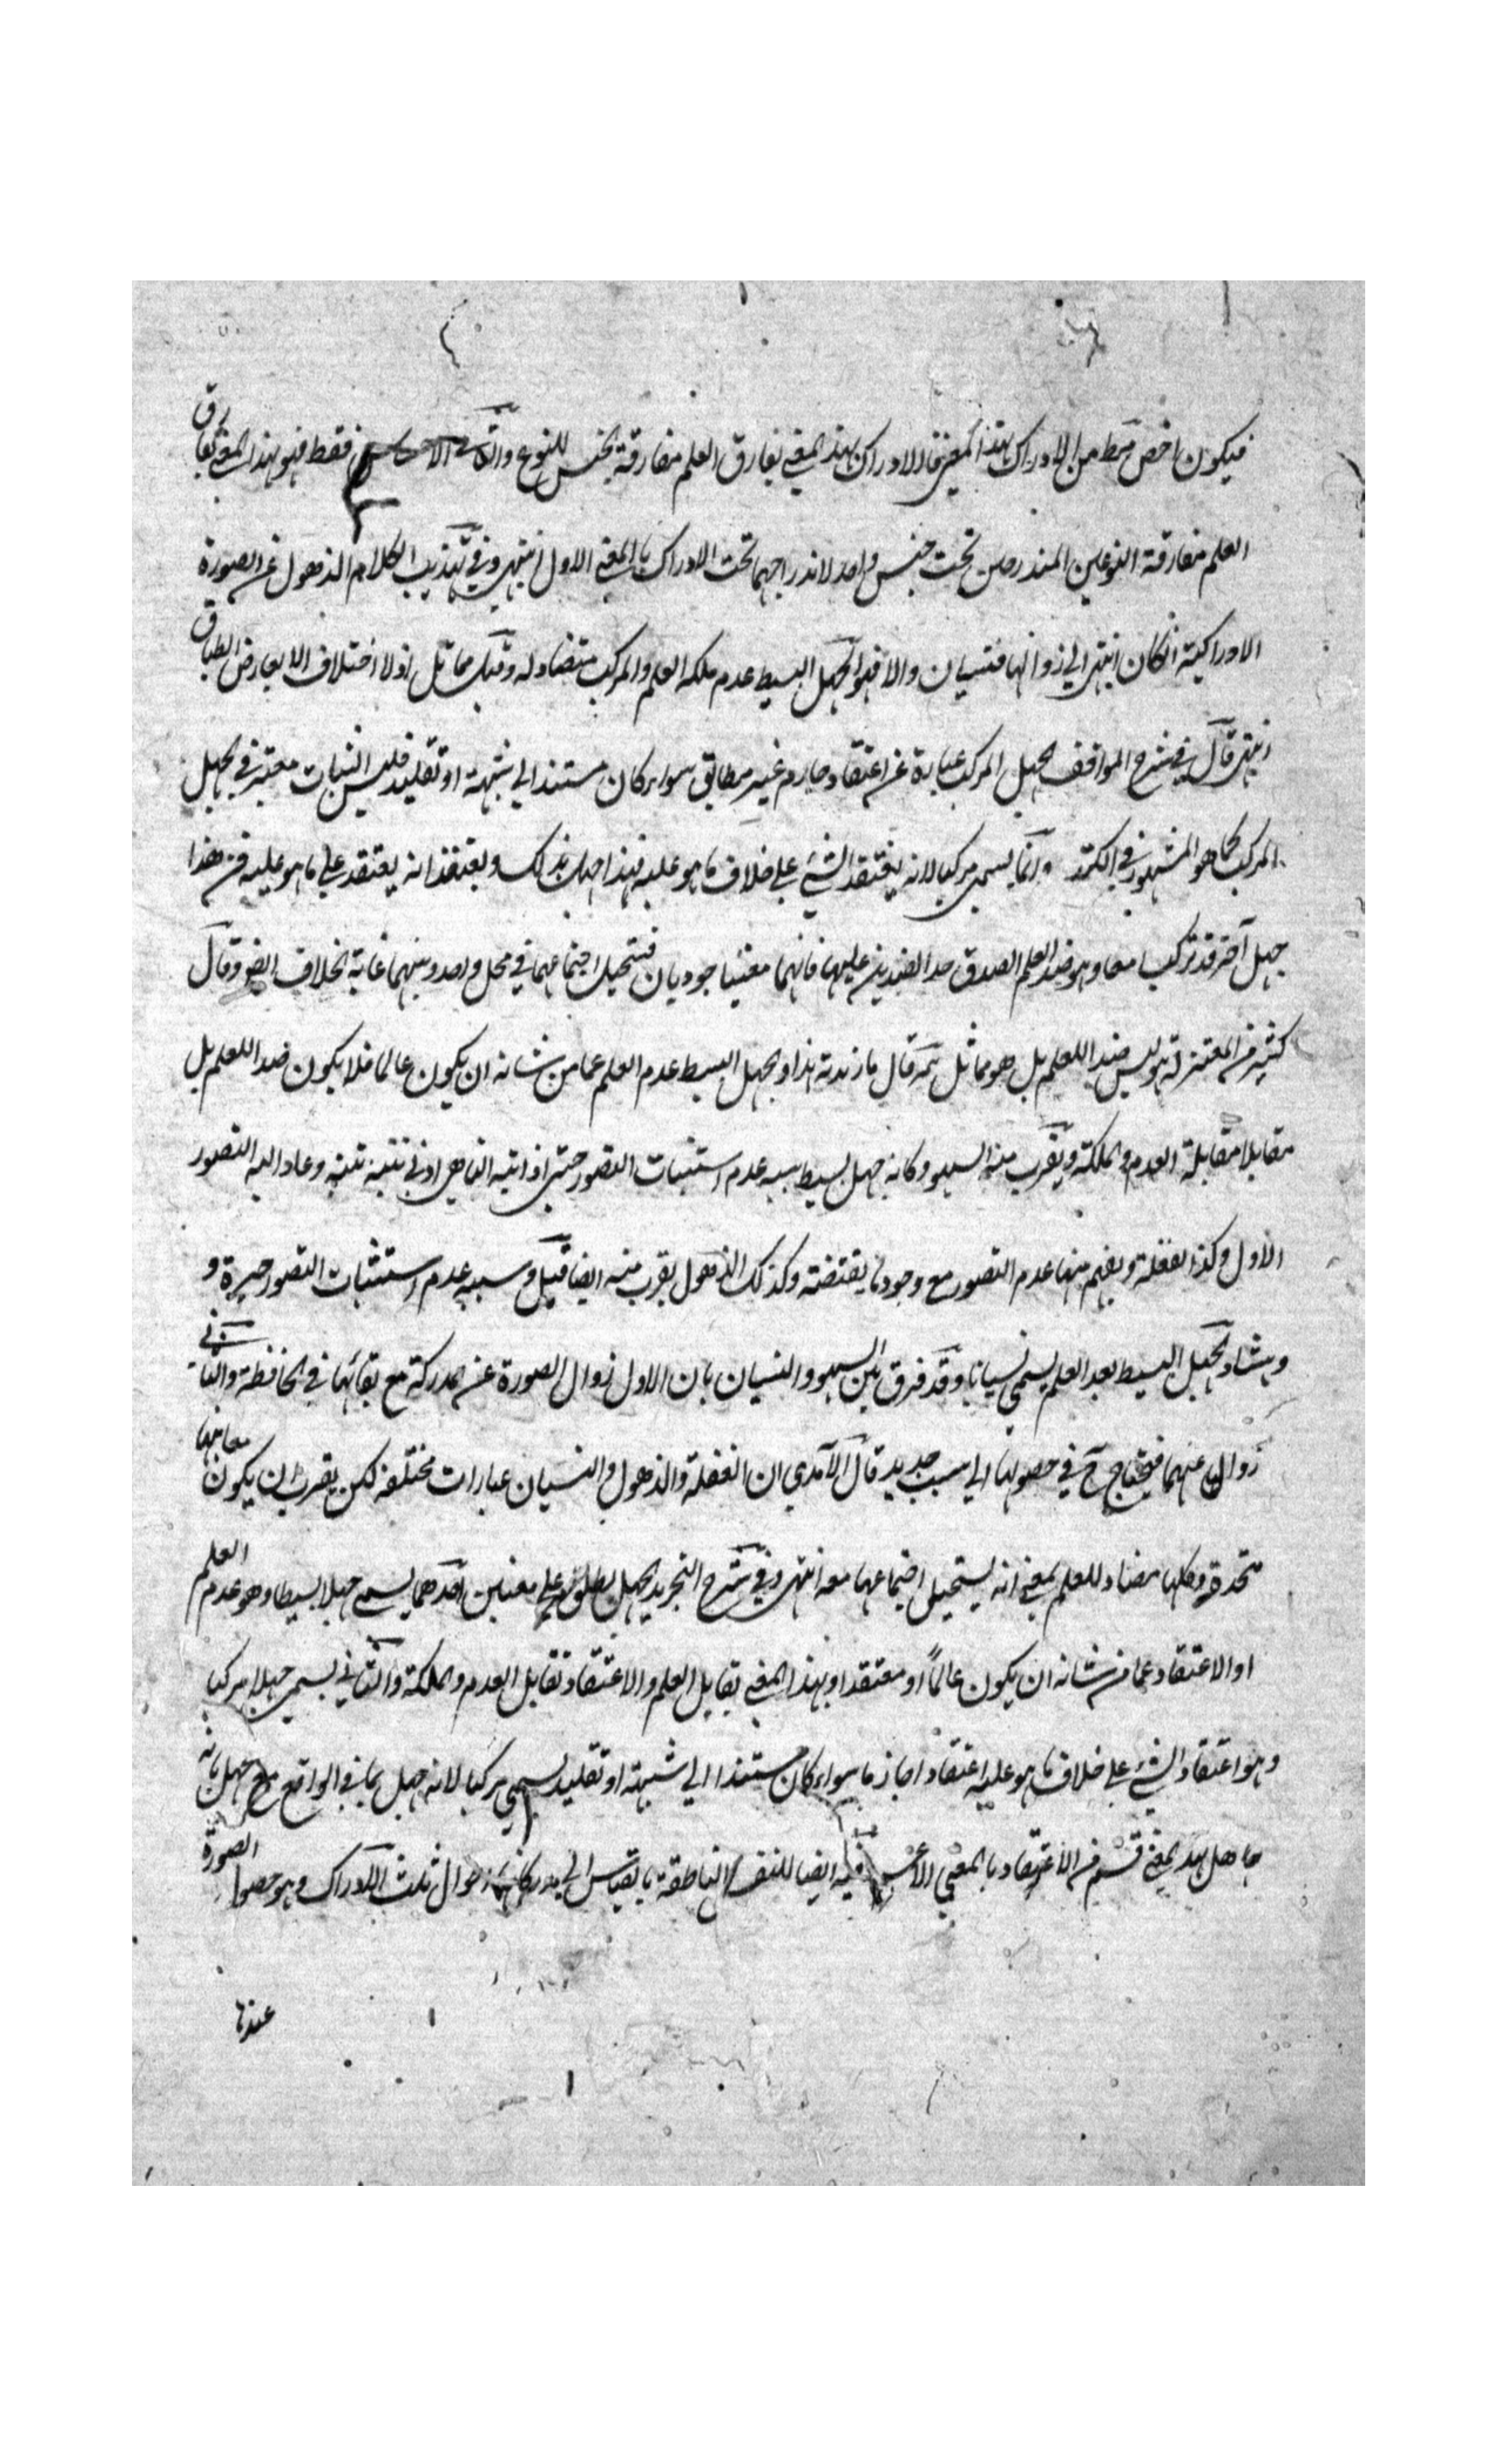 فيكون اخص مط من الادراك بهذا المعنى فالادراك بهذا المعنى يفارق العلم مفارقة الجنس للنوع والثاني الاحساس فقط فهو بهذا المعنى يفارق
العلم مفارقة النوعين المندرجين تحت جنس واحد لاندراجهما تحت الادراك بالمعنى الاول انتهى وفي تهذيب الكلام الذهول عن الصورة
الادراكية ان كان انتهى الى زوالها فنسيان والا فسهو الجهل البسيط عدم ملكة العلم والمركب متضاد له وقيل مماثل اذ لا اختلاف الا بعارض الطباق
انتهى قال في شرح المواقف الجهل المركب عبارة عن اعتقاد جازم غير مطابق سواء كان مستندا الى شبهة او تقليد فليس الثبات معتبر في الجهل
المركب كما هو المشهور في الكتب وانما يسمى مركبا لانه يعتقد الشئ على خلاف ما هو عليه فهذا جهل بذلك ويعتقد انه يعتقد على ما هو عليه فن هذا
جهل آخر قد تركب معا وهو ضد العلم لصدق حد الضدين عليهما فانهما معنيا جوديان فتستحيل اجتماعهما في محل واحد وبينهما غاية الخلاف ايضا وقال
كثير من المعتزلة هو ليس ضدا للعلم بل هو مماثل ثم قال ما زندته هذا والجهل البسيط عدم العلم عما من شانه ان يكون عالما فلا يكون ضدا للعلم بل
مقابلا مقابلة العدم والملكة ويقرب منه السهو وكانه جهل بسيط سببه عدم استثبات التصور حتى اذا نبه الساهي ادنى تنبيه تنبه وعاد اليه التصور
الاول وكذا الغفلة ويفهم منها عدم التصور مع وجود ما يقتضيه وكذلك الذهول يقرب منه ايضا قيل وسببه عدم استثبات التصور حيرة و
دهشا والجهل البسيط بعد العلم يسمى نسيانا وقد فرق بين السهو والنسيان بان الاول زوال الصورة عن المدركة مع بقائها في الحافظة والثاني
زوالها عنهما فيحتاج ح في حصولها الى سبب جديد قال الآمدي ان الغفلة والذهول والنسيان عبارات مختلفة لكن يقرب ان يكون معانيها
متحدة وكلها مضاد للعلم بمعنى انه يستحيل اجتماعها معه انتهى وفي شرح التجريد الجهل يطلق على معنيين احدهما يسمى جهلا بسيطا وهو عدم العلم
او الاعتقاد عما من شانه ان يكون عالماً او معتقدا وبهذا المعنى يقابل العلم والاعتقاد تقابل العدم والملكة والثاني يسمى جهلا مركبا
وهو اعتقاد الشئ على خلاف ما هو عليه اعتقادا جازما سواء كان مستندا الى شبهة او تقليد يسمى مركبا لانه جهل بما في الواقع مع جهل بانه
جاهل بهذا المعنى قسم من الاعتقاد بالمعنى الاعم فيه ايضا للنفس الناطقة بالقياس الى مدركاتها احوال ثلث الادراك وهو حصول الصورة
عندها